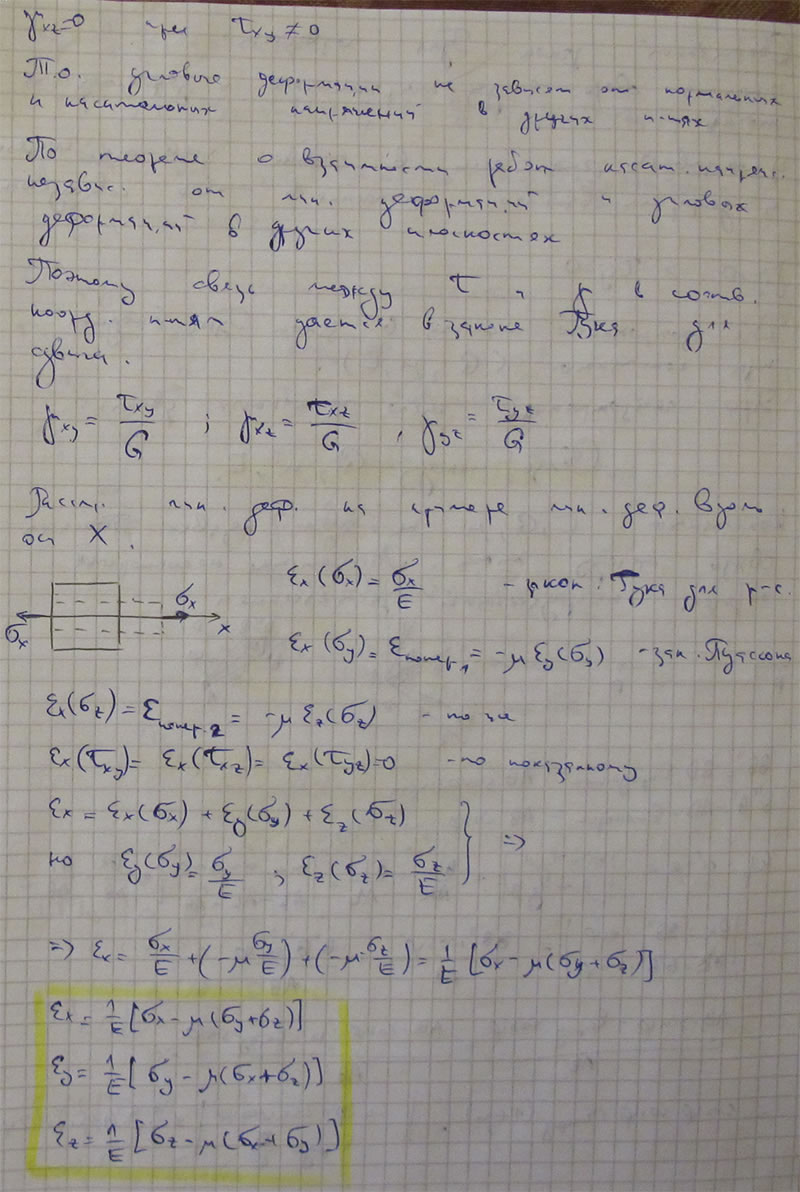 γxz=0 при τxy ≠ 0
Т.о. угловые деформации не зависят от нормальных
и касательных напряжений в других п-тях
По теореме о взаимности работ касат. напряж.
независ. от лин. деформаций и угловых
деформаций в других плоскостях
Поэтому связь между τ и γ в соотв.
коорд. п-тях дается в законе Гука для
сдвига.
γxy = τxy/G ; γxz = τxz/G , γyz = τyz/G
Рассм. лин. деф. на примере лин. деф. вдоль
оси X.
εx(σx) = σx/E - закон Гука для р-с.
σx σx x
εx(σy) = εпопер.1 = -μ εy(σy) - зак. Пуассона
εx(σz) = εпопер.2 = -μ εz(σz)
εx(τxy) = εx(τxz) = εx(τyz)=0 -по показанному
εx = εx(σx) + εy(σy) + εz(σz)
но εy(σy) = σy/E ; εz(σz) = σz/E } =>
=> εx = σx/E + (-μ σy/E) + (-μ σz/E) = 1/E [σx - μ(σy+σz)]
εx = 1/E [σx - μ(σy+σz)]
εy = 1/E [σy - μ(σx+σz)]
εz = 1/E [σz - μ(σx+σy)]